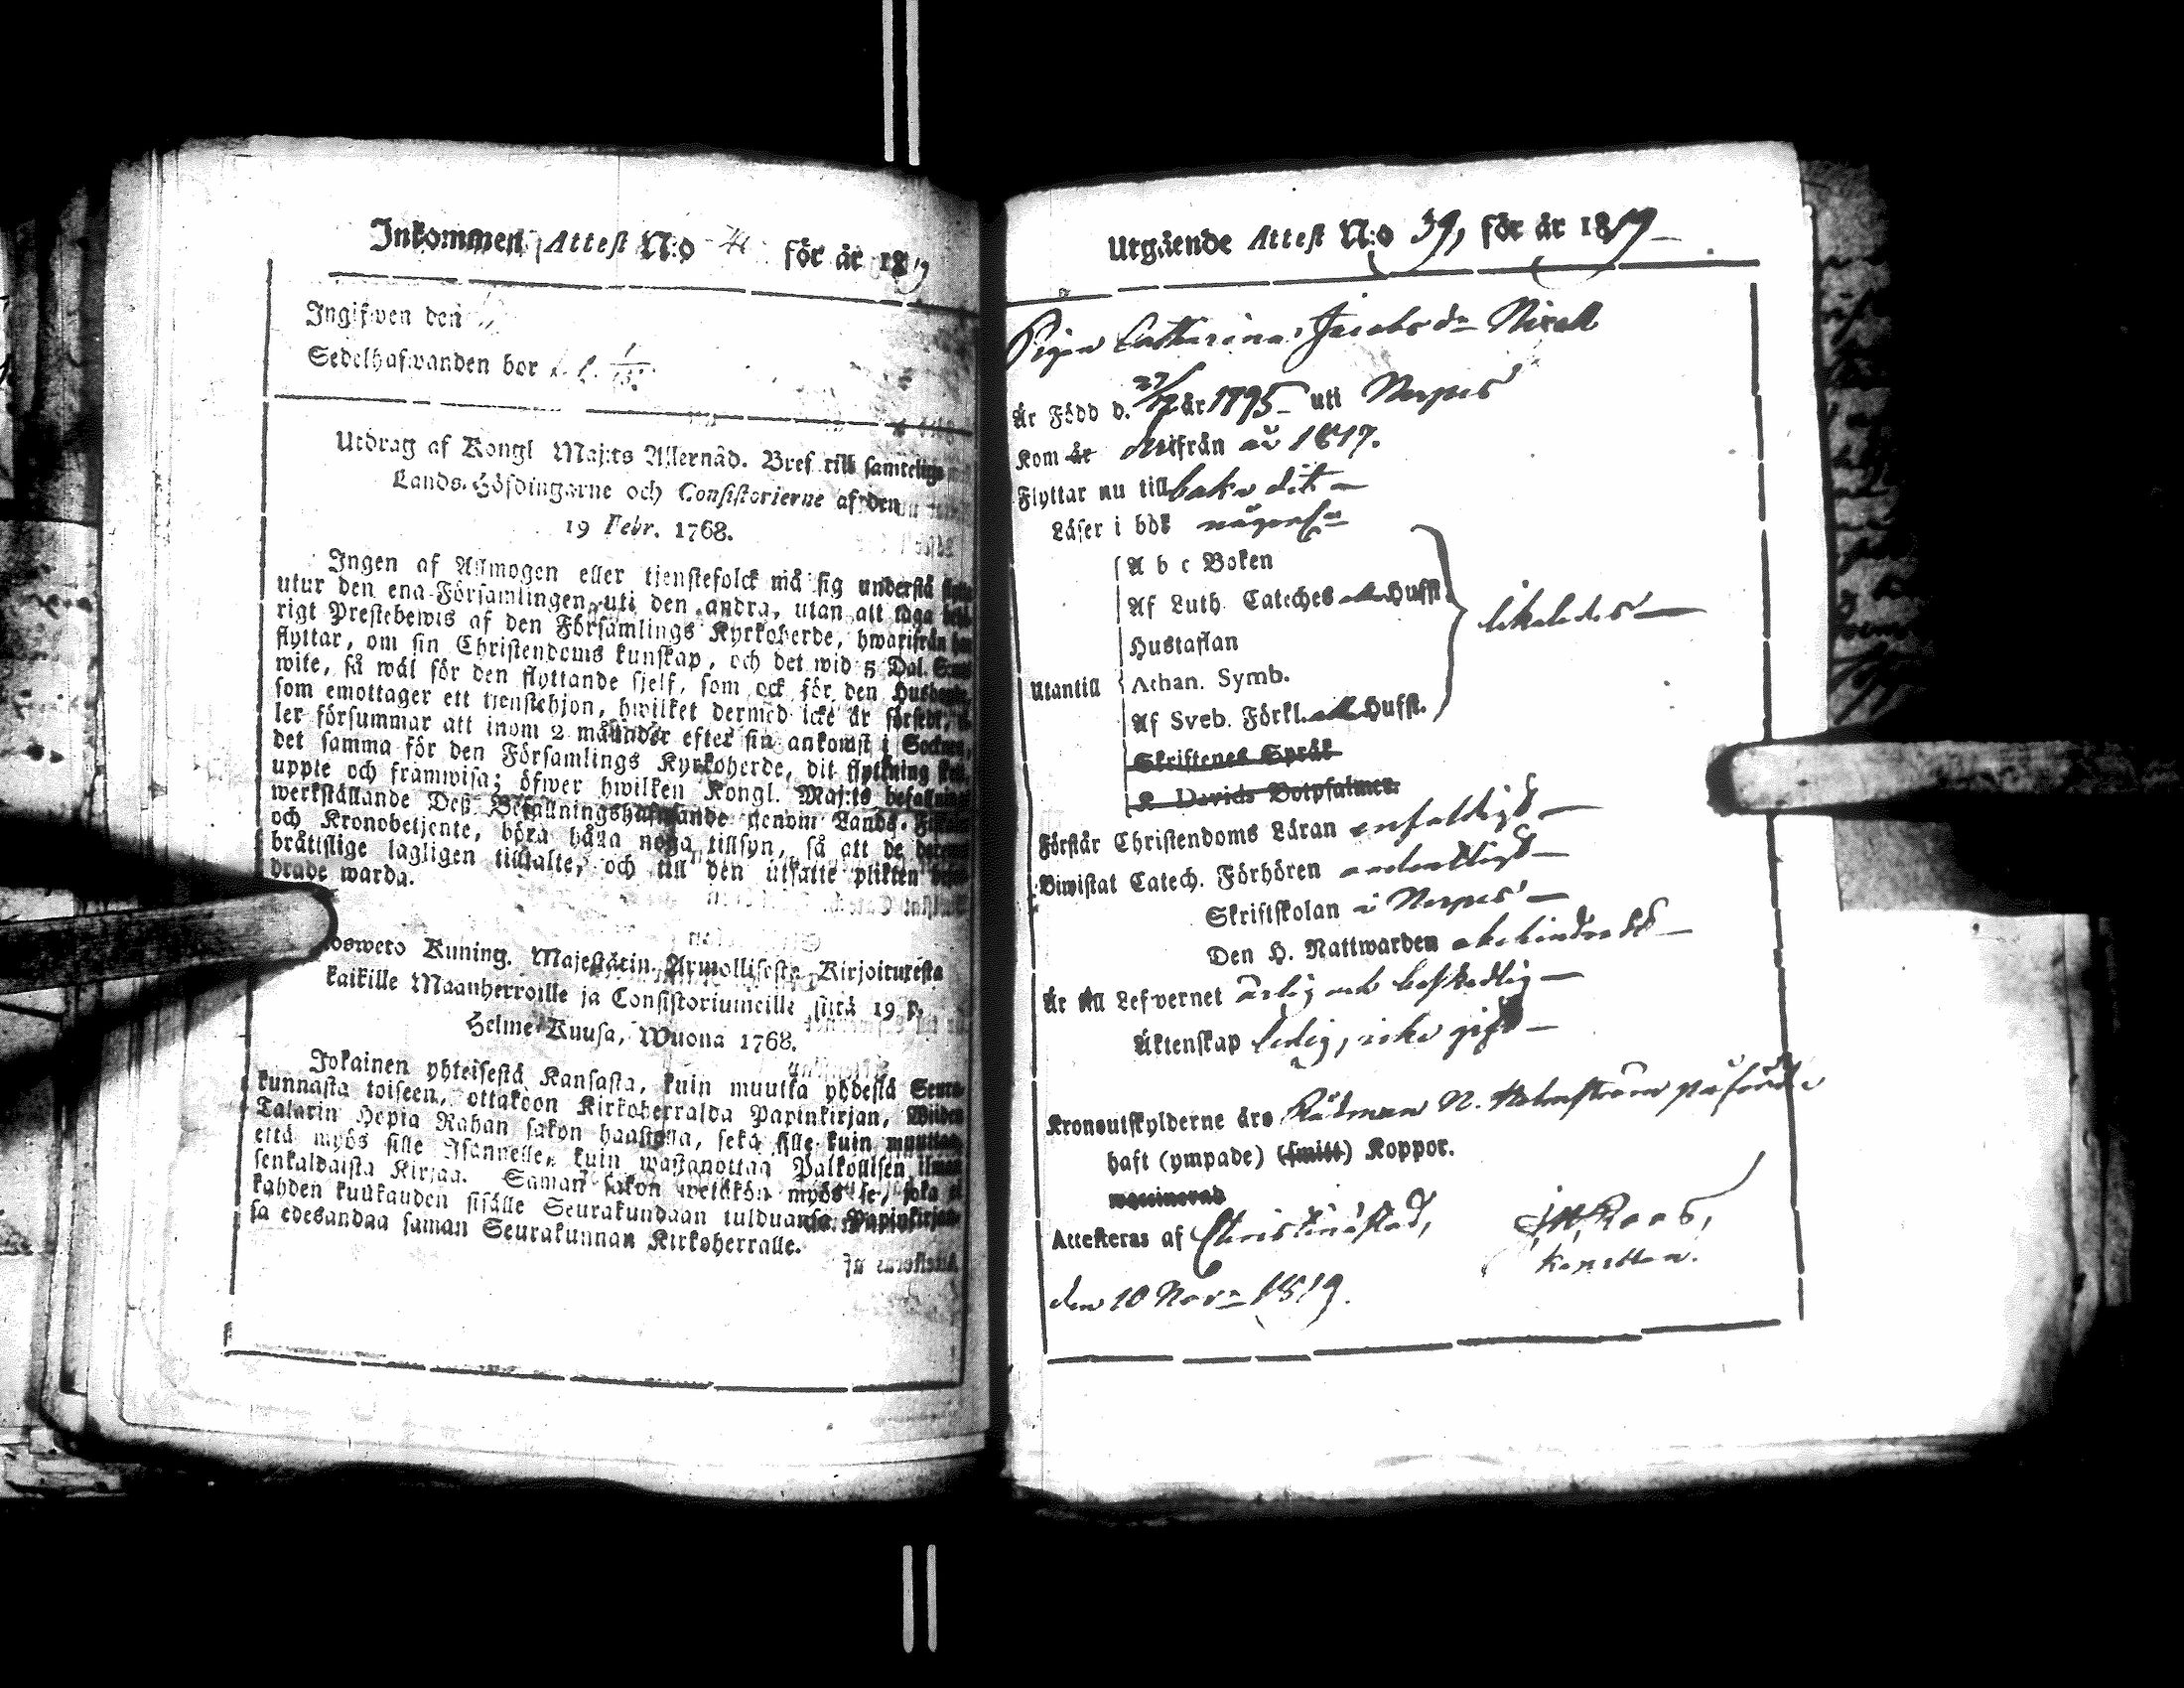 Inkommen Attest N:o för år 18
Ingifwen den
Sedelhafwanden bor
Utdrag af Kongl Maj:ts Allernåd. Bref till samtelige
Lands-Höfdingarne och Consistorierne af den
19 Febr. 1768.
Ingen af Allmogen eller tjenstefolck må sig understå
utur den ena Församlingen uti den andra, utan att taga
rigt Prestebewis af den Församlings Kyrkoherde, hwarifrån
flyttar, om sin Christendoms kunskap, och det wid 5 Dal.
wite, så wäl för den flyttande sjelf, som ock för den
som emottager ett tjenstehjon, hwilket dermed icke är försedt,
ler försummar att inom 2 månader efter sin ankomst i Socknen,
det samma för den Församlings Kyrkoherde, dit flyttning
uppte och framwisa; öfwer hwilken Kongl. Maj:ts befallning
werkställande Deß Befallningshafwande genom Lands-
och Kronobetjente, böra hålla noga tillsyn, så att de
bråttslige lagligen tilltalte, och till den utsatte plikten
drade warda.
Kuning. Majestätin Armollisesta Kirjoituxesta
kaikille Maanherroille ja Consistoriumeille siitä 19 p.
Helme-Kuusa, Wuona 1768.
Jokainen yhteisestä Kansasta, kuin muutta yhdestä Seura-
kunnasta toiseen, ottakoon Kirkoherralda Papinkirjan, Wiiden
Talarin Hopia Rahan sakon haastolla, sekä sille kuin muuttaa,
että myös sille Isännelle, kuin wastanottaa Palkollisen ilman
senkaldaista Kirjaa. Saman sakon wetäkön myös se, joka ei
kahden kuukauden sisälle Seurakundaan tulduansa Papinkirjan-
sa edesandaa saman Seurakunnan Kirkoherralle.
Utgående Attest N:o 39, för år 1819
Pigan Catharina Jacobs dr
Är Född d. 27/12 år 1795 uti Nerpes
Kom år ditifrån år 1817.
Flyttar nu till baka dit
Läser i bok någorl.
A b c Boken
Af Luth. Cateches Husfl.
Hustaflan
likaledes
Utantill
Athan. Symb.
Af Sveb. Förkl. Husfl.
Skriftenes Språk
K Davids Botpsalmer.
Förstår Christendoms Läran enfaldigt
Biwistat Catech. Förhören ordentligt
Skriftskolan i Nerpes
Den H. Nattwarden obehindradt
Är till Lefwernet ärlig och beskedlig
Äktenskap ledig, icke gift
Kronoutskylderne äro Rådman N. Holmström påförde
haft (ympade) (smitt) Koppor.
waccinerad
Attesteras af Christinæstad,
den 10 Nov. 1819.